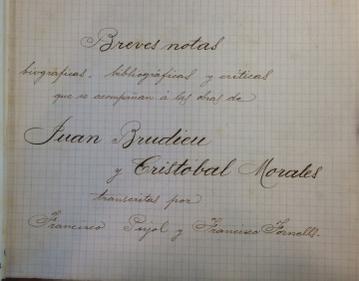 Breves notas
biográficas, bibliográficas y críticas
que se acompañan á las obras de
Juan Brudieu
y Cristobal Morales
transcritas por
Francisco Pujol y Francisco Fornells.